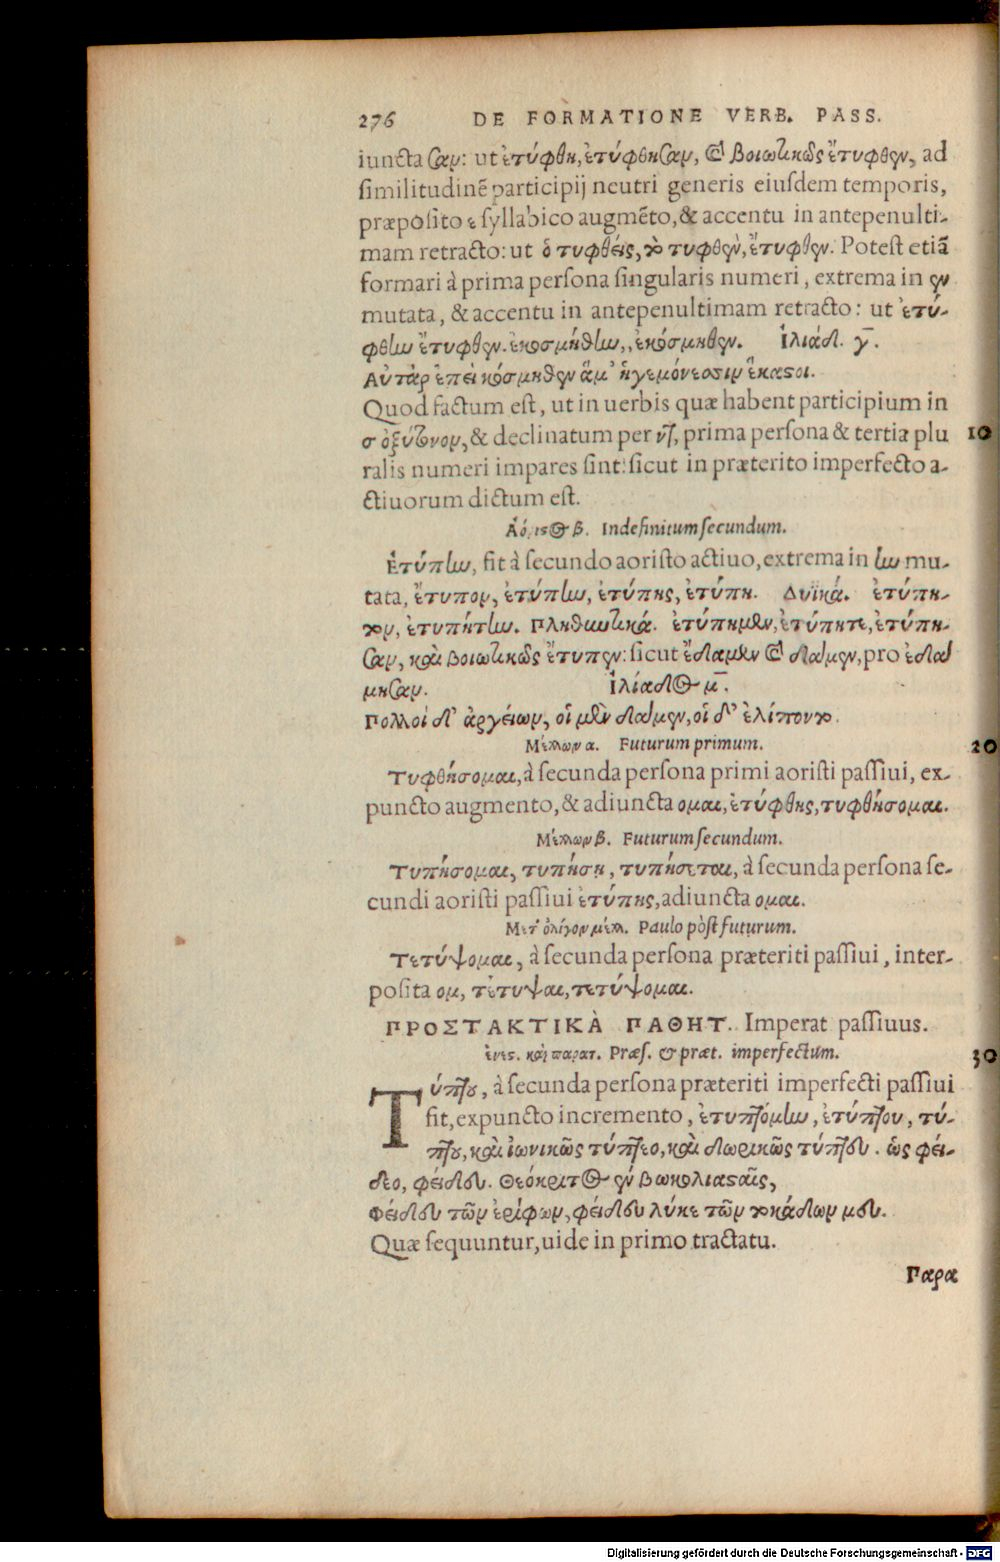 276 DE FORMATIONE VERB. PASS.
iuncta σαν: ut ἐτύφθη, ἐτύφθησαν, & βοιωτικῶς ἔτυφθεν, ad
similitudinē participij neutri generis eiusdem temporis,
præposito ε syllabico augmēto, & accentu in antepenulti-
mam retracto: ut ὁ τυφθείς, τὸ τυφθὲν, ἔτυφθεν. Potest etiā
formari à prima persona singularis numeri, extrema in εν
mutata, & accentu in antepenultimam retracto: ut ἐτύ-
φθην ἔτυφθεν. ἐκοσμήθην, ἐκόσμηθεν. Ἰλιάδ. γ̄.
Αὐτὰρ ἐπεὶ κόσμηθεν ἅμ' ἡγεμόνεσσιν ἕκαστοι.
Quod factum est, ut in uerbis quæ habent participium in
σ ὀξύτονον, & declinatum per ντ, prima persona & tertia plu 10
ralis numeri impares sint: sicut in præterito imperfecto a-
ctiuorum dictum est.
Ἀόριστος β. Indefinitum secundum.
Ἐτύπην, fit à secundo aoristo actiuo, extrema in ην mu-
tata, ἔτυπον, ἐτύπην, ἐτύπης, ἐτύπη. Δυϊκά. ἐτύπη-
τον, ἐτυπήτην. Πληθωτικά. ἐτύπημεν, ἐτύπητε, ἐτύπη-
σαν, καὶ βοιωτικῶς ἔτυπεν: sicut ἐδάμεν & δάμεν, pro ἐδά
μησαν. Ἰλίαδος μ̄.
Πολλοὶ δ' ἀργείων, οἱ μὲν δάμεν, οἱ δ' ἐλίποντο.
Μέλλων α. Futurum primum. 20
Τυφθήσομαι, à secunda persona primi aoristi passiui, ex-
puncto augmento, & adiuncta ομαι, ἐτύφθης, τυφθήσομαι.
Μέλλων β. Futurum secundum.
Τυπήσομαι, τυπήσῃ, τυπήσεται, à secunda persona se-
cundi aoristi passiui ἐτύπης, adiuncta ομαι.
Μετ' ὀλίγον μέλλ. Paulo pòst futurum.
Τετύψομαι, à secunda persona præteriti passiui, inter-
posita ομ, τέτυψαι, τετύψομαι.
ΠΡΟΣΤΑΚΤΙΚᾺ ΠΑΘΗΤ. Imperat passiuus.
ἐνεσ. καὶ παρατ. Præs. & præt. imperfectum. 30
Τύπτου, à secunda persona præteriti imperfecti passiui
fit, expuncto incremento, ἐτυπτόμην, ἐτύπτου, τύ-
πτου, καὶ ἰωνικῶς τύπτεο, καὶ δωρικῶς τύπτευ. ὡς φεί-
δεο, φείδευ. Θεόκριτος ἐν Βωκολιασταῖς,
Φείδευ τῶν ἐρίφων, φείδευ λύκε τῶν τοκάδων μευ.
Quæ sequuntur, uide in primo tractatu.
Παρα
Digitalisierung gefördert durch die Deutsche Forschungsgemeinschaft - DFG